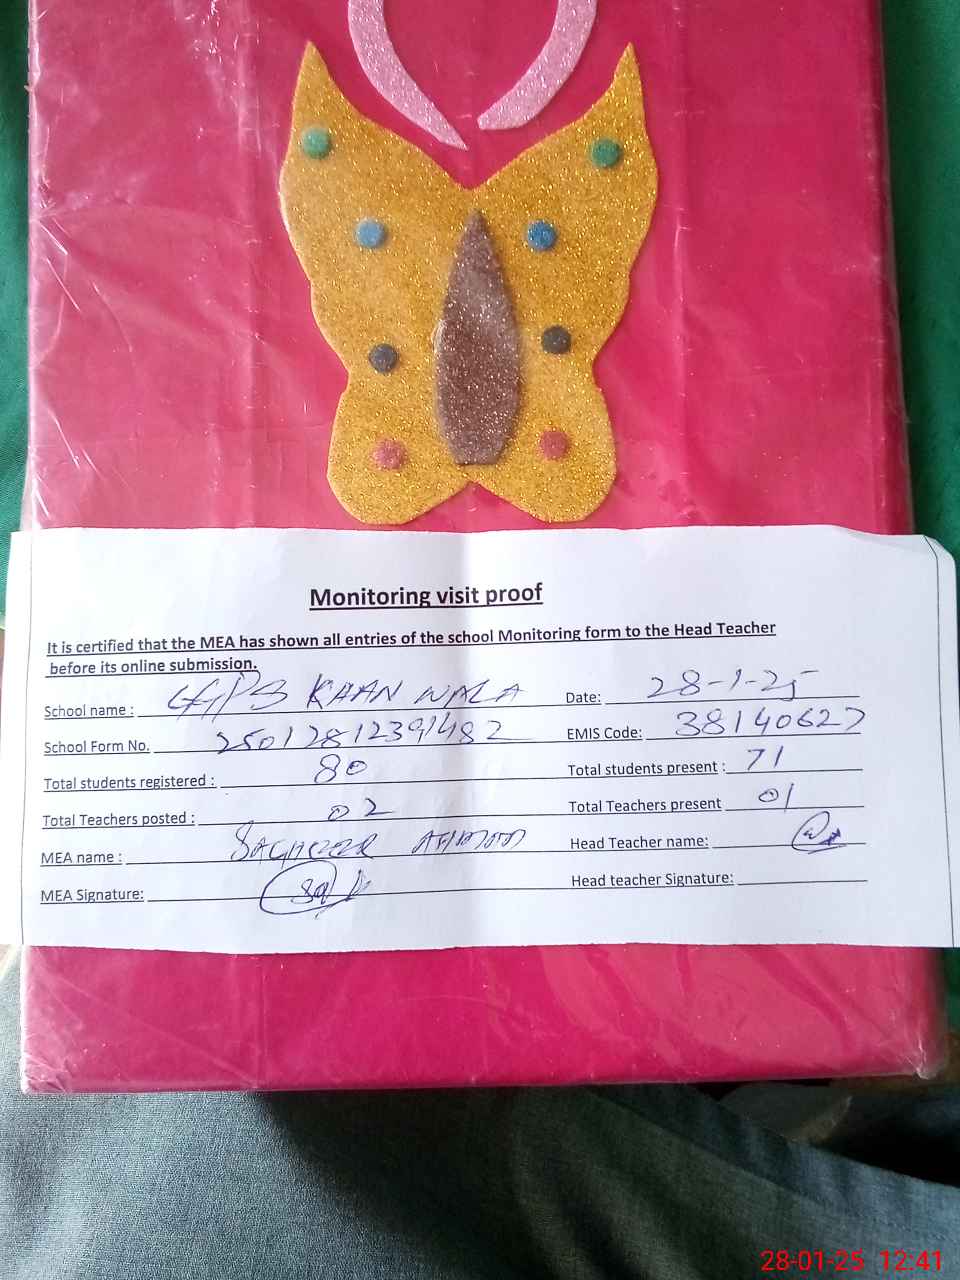 Monitoring visit proof
It is certified that the MEA has shown all entries of the school Monitoring form to the Head Teacher
before its online submission.
School name : GGPS KHAN WALA Date: 28-1-25
School Form No. 25012812391482 EMIS Code: 38140627
Total students registered : 80 Total students present : 71
Total Teachers posted : 02 Total Teachers present 01
MEA name : SAGHEER AHMAD Head Teacher name:
MEA Signature: Head teacher Signature:
28-01-25 12:41